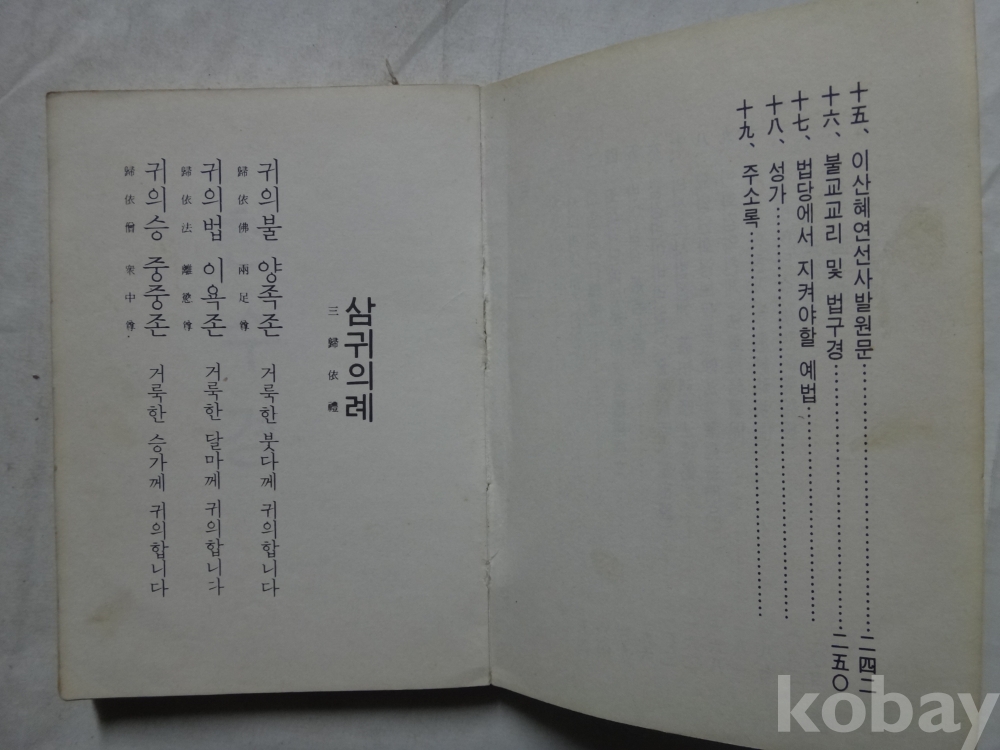 十五、이산혜연선사발원문……二四二
十六、불교교리 및 법구경……二五〇
十七、법당에서 지켜야할 예법……
十八、성가……
十九、주소록……
삼귀의례
三歸依禮
귀의불 양족존 거룩한 붓다께 귀의합니다
歸依佛 兩足尊
귀의법 이욕존 거룩한 달마께 귀의합니다
歸依法 離慾尊
귀의승 중중존 거룩한 승가께 귀의합니다
歸依僧 衆中尊
kobay